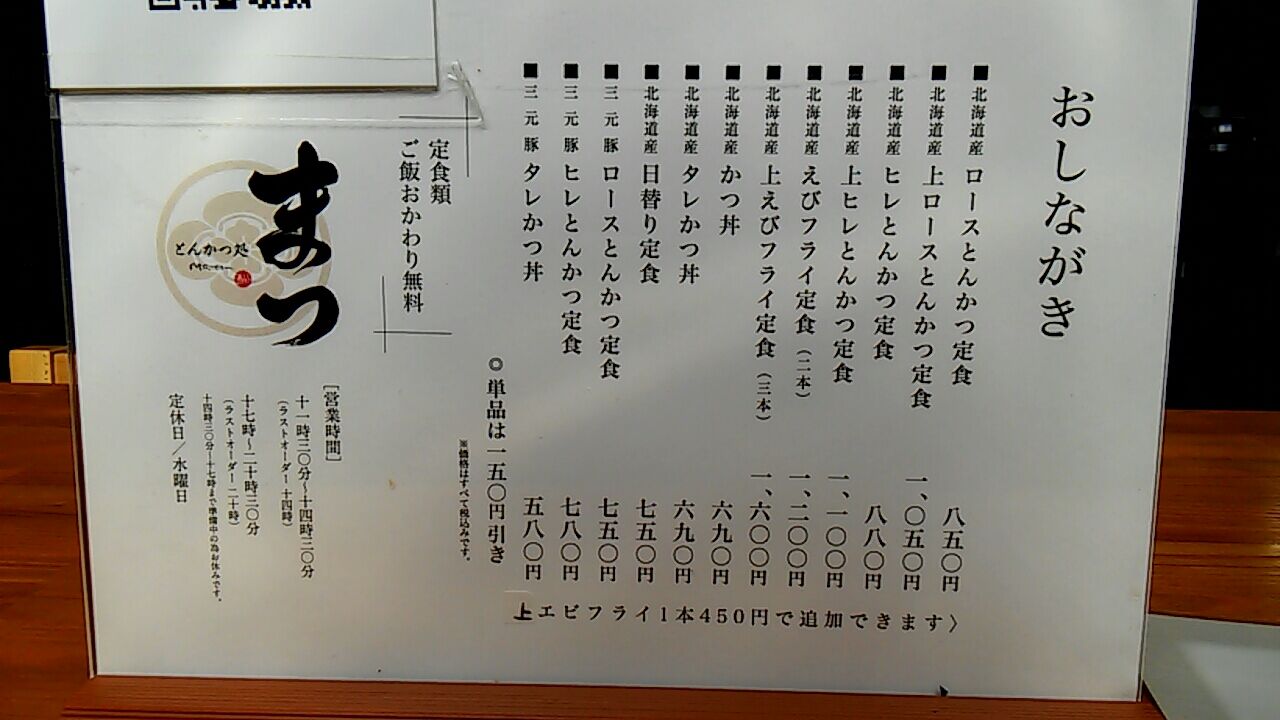 おしながき
■北海道産 ロースとんかつ定食 八五〇円
■北海道産 上ロースとんかつ定食 一、〇五〇円
■北海道産 ヒレとんかつ定食 八八〇円
■北海道産 上ヒレとんかつ定食 一、一〇〇円
■北海道産 えびフライ定食（二本） 一、二〇〇円
■北海道産 上えびフライ定食（三本） 一、六〇〇円
■北海道産 かつ丼 六九〇円
■北海道産 タレかつ丼 六九〇円
■北海道産 日替り定食 七五〇円
■三元豚 ロースとんかつ定食 七五〇円
■三元豚 ヒレとんかつ定食 七八〇円
■三元豚 タレかつ丼 五八〇円
上エビフライ1本450円で追加できます〉
◎単品は一五〇円引き
※価格はすべて税込みです。
定食類
ご飯おかわり無料
まつ
とんかつ処
［営業時間］
十一時三〇分〜十四時三〇分
（ラストオーダー 十四時）
十七時〜二十時三〇分
（ラストオーダー 二十時）
十四時三〇分〜十七時まで準備中の為お休みです。
定休日／水曜日